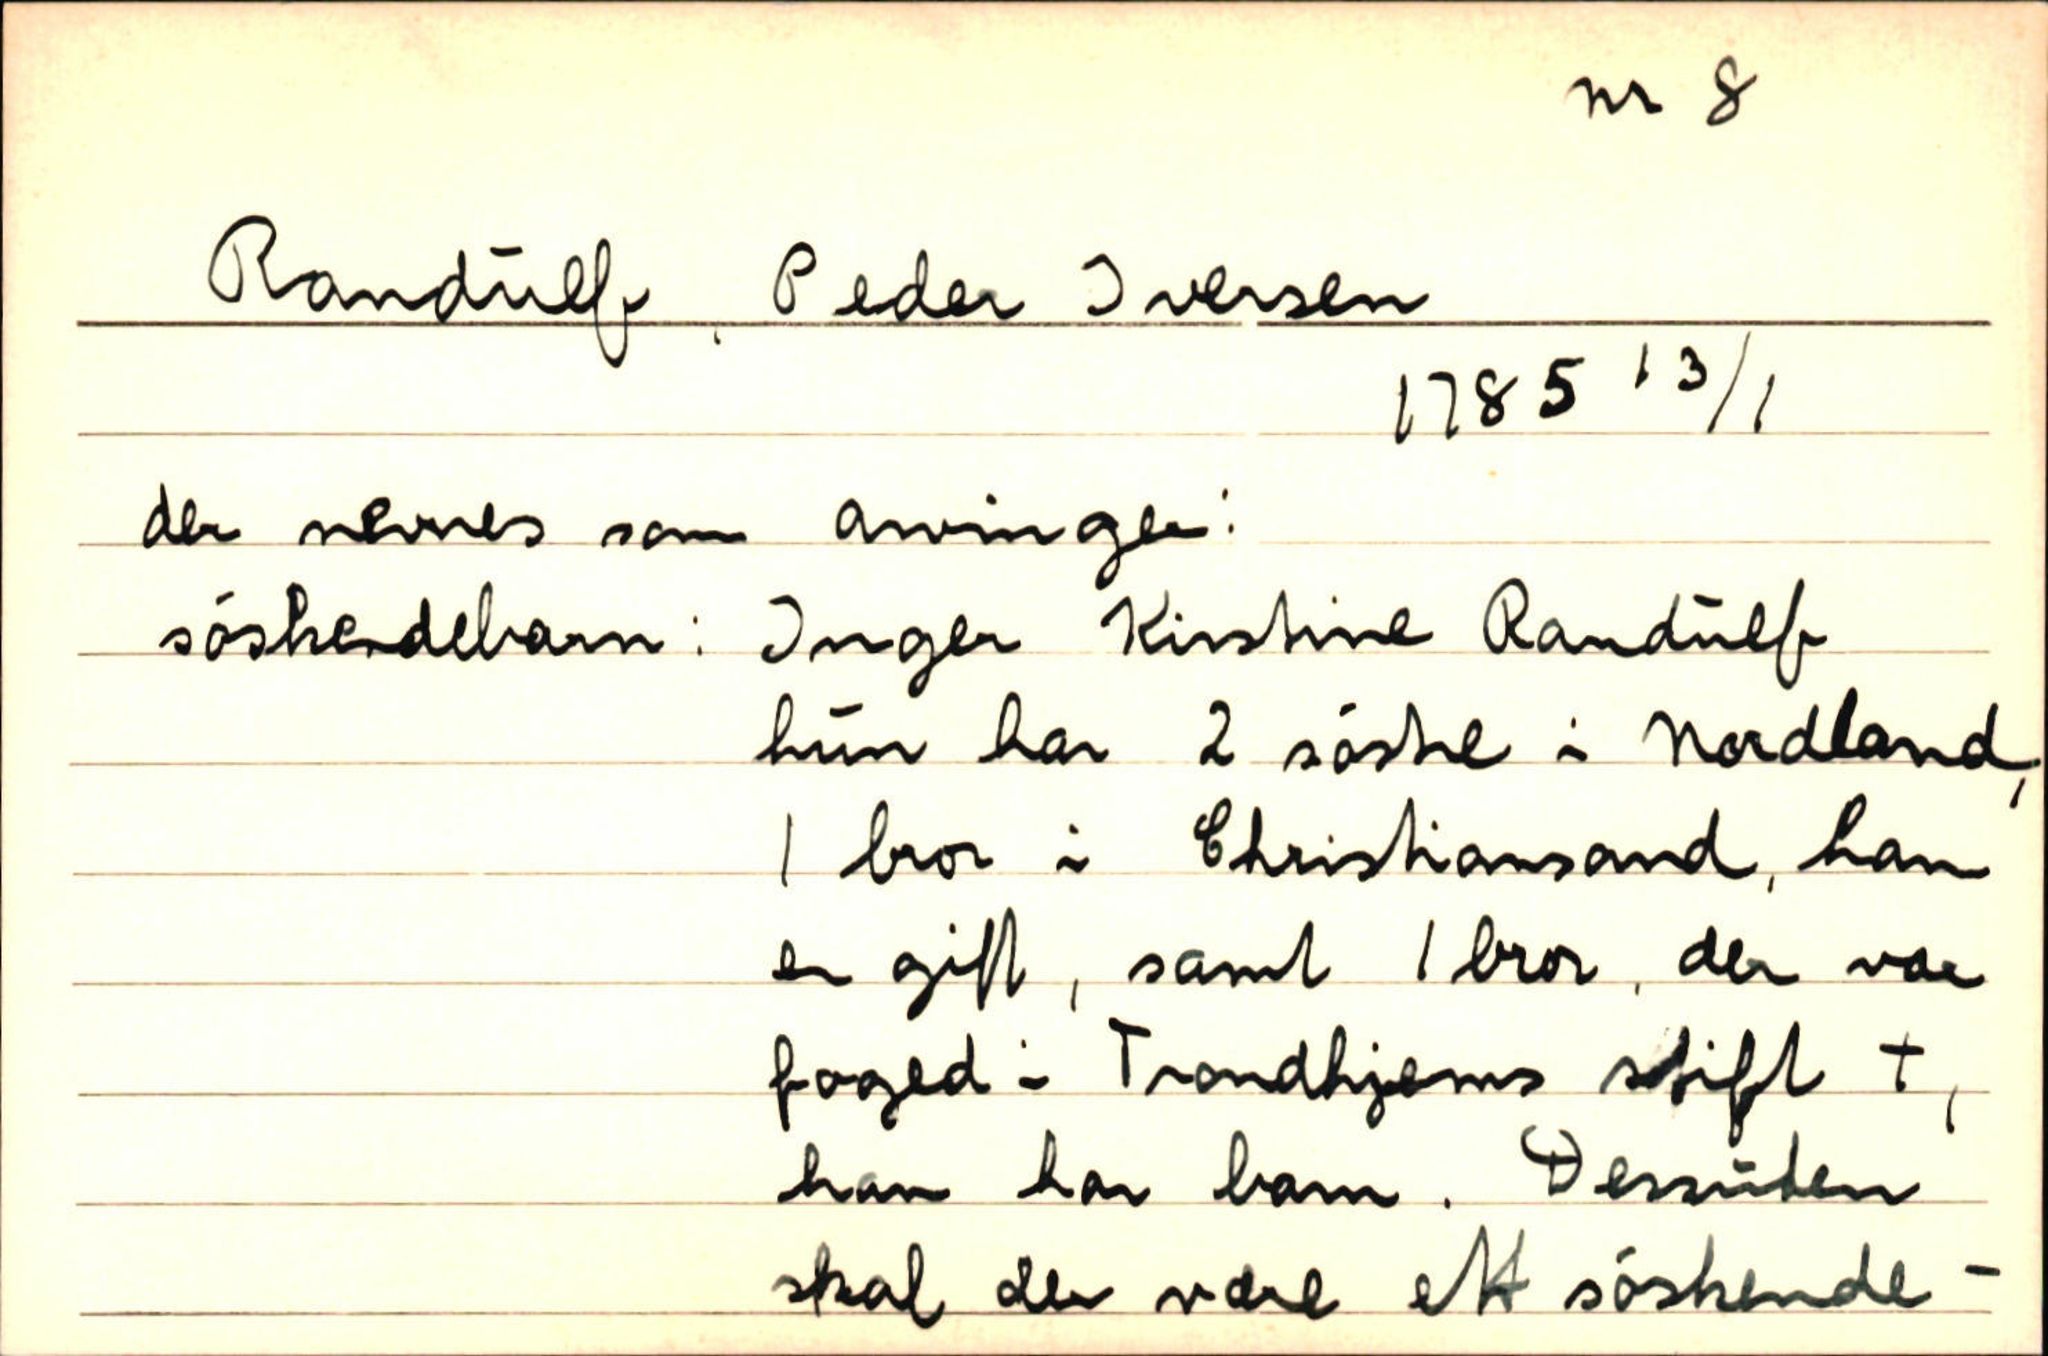 nr 8
Randulf, Peder Iversen
1785 13/1
der nevnes som arvinger:
söskendebarn: Inger Kirstine Randulf
hun har 2 söstre i Nordland,
1 bror i Christiansand, han
er gift, samt 1 bror, der var
foged i Trondhjems stift +,
han har barn. Dessuten
skal der være ett söskende-